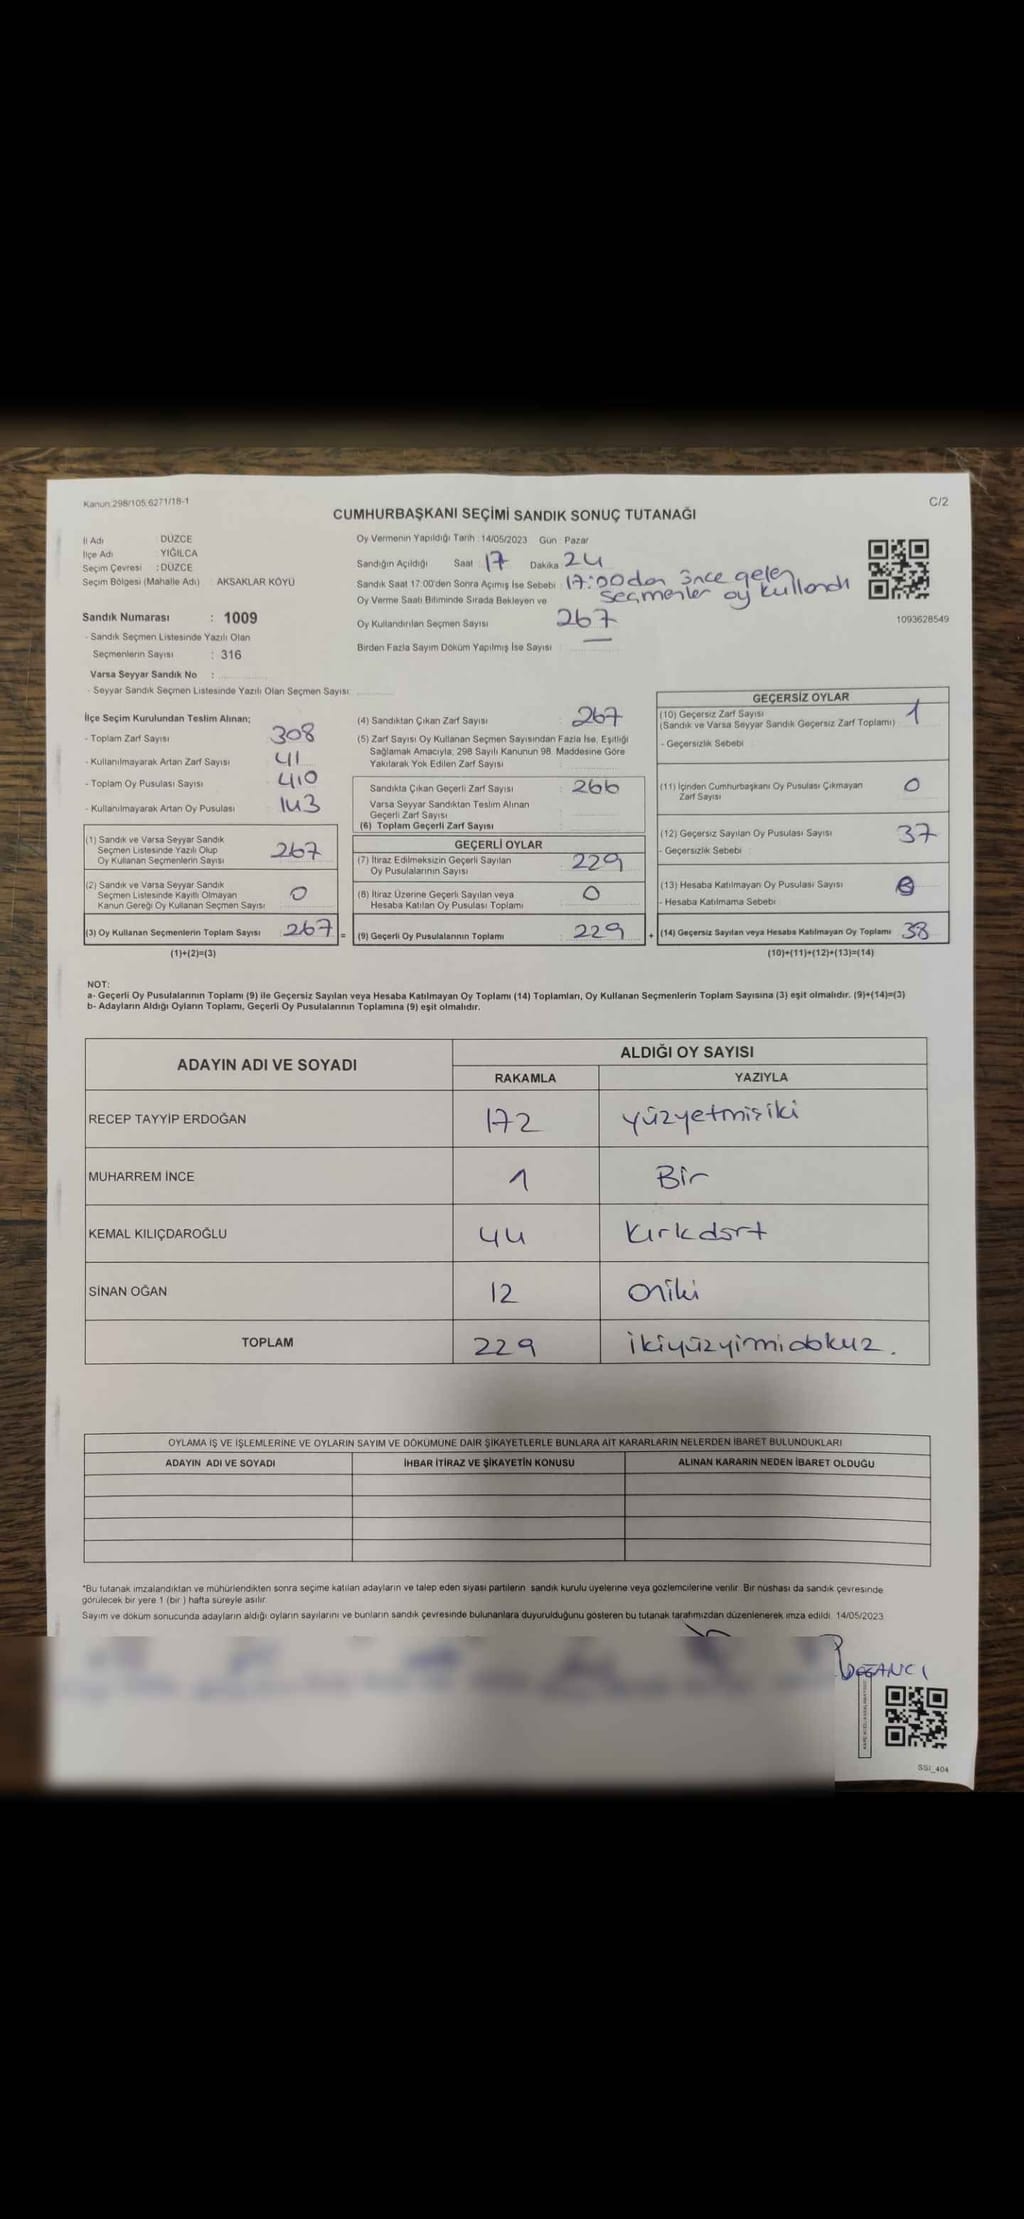 Kanun:298/105,6271/18-1
C/2
CUMHURBAŞKANI SEÇİMİ SANDIK SONUÇ TUTANAĞI
İl Adı : DÜZCE
İlçe Adı : YIĞILCA
Seçim Çevresi : DÜZCE
Seçim Bölgesi (Mahalle Adı) : AKSAKLAR KÖYÜ
Sandık Numarası : 1009
- Sandık Seçmen Listesinde Yazılı Olan
Seçmenlerin Sayısı : 316
Varsa Seyyar Sandık No :
- Seyyar Sandık Seçmen Listesinde Yazılı Olan Seçmen Sayısı:
Oy Vermenin Yapıldığı Tarih : 14/05/2023 Gün : Pazar
Sandığın Açıldığı Saat : 17 Dakika : 24
Sandık Saat 17:00'den Sonra Açımış İse Sebebi : 17:00 dan önce gelen
seçmenler oy kullandı
Oy Verme Saati Bitiminde Sırada Bekleyen ve
Oy Kullandırılan Seçmen Sayısı 267
Birden Fazla Sayım Döküm Yapılmış İse Sayısı
1093628549
İlçe Seçim Kurulundan Teslim Alınan;
- Toplam Zarf Sayısı 308
- Kullanılmayarak Artan Zarf Sayısı 41
- Toplam Oy Pusulası Sayısı 410
- Kullanılmayarak Artan Oy Pusulası 143
(1) Sandık ve Varsa Seyyar Sandık
Seçmen Listesinde Yazılı Olup
Oy Kullanan Seçmenlerin Sayısı 267
(2) Sandık ve Varsa Seyyar Sandık
Seçmen Listesinde Kayıtlı Olmayan
Kanun Gereği Oy Kullanan Seçmen Sayısı 0
(3) Oy Kullanan Seçmenlerin Toplam Sayısı 267 =
(1)+(2)=(3)
(4) Sandıktan Çıkan Zarf Sayısı 267
(5) Zarf Sayısı Oy Kullanan Seçmen Sayısından Fazla İse, Eşitliği
Sağlamak Amacıyla, 298 Sayılı Kanunun 98. Maddesine Göre
Yakılarak Yok Edilen Zarf Sayısı
Sandıkta Çıkan Geçerli Zarf Sayısı 266
Varsa Seyyar Sandıktan Teslim Alınan
Geçerli Zarf Sayısı
(6) Toplam Geçerli Zarf Sayısı
GEÇERLİ OYLAR
(7) İtiraz Edilmeksizin Geçerli Sayılan
Oy Pusulalarının Sayısı 229
(8) İtiraz Üzerine Geçerli Sayılan veya
Hesaba Katılan Oy Pusulası Toplamı 0
(9) Geçerli Oy Pusulalarının Toplamı 229 +
GEÇERSİZ OYLAR
(10) Geçersiz Zarf Sayısı 1
(Sandık ve Varsa Seyyar Sandık Geçersiz Zarf Toplamı)
- Geçersizlik Sebebi
(11) İçinden Cumhurbaşkanı Oy Pusulası Çıkmayan 0
Zarf Sayısı
(12) Geçersiz Sayılan Oy Pusulası Sayısı 37
- Geçersizlik Sebebi
(13) Hesaba Katılmayan Oy Pusulası Sayısı
- Hesaba Katılmama Sebebi
(14) Geçersiz Sayılan veya Hesaba Katılmayan Oy Toplamı 38
(10)+(11)+(12)+(13)=(14)
NOT:
a- Geçerli Oy Pusulalarının Toplamı (9) ile Geçersiz Sayılan veya Hesaba Katılmayan Oy Toplamı (14) Toplamları, Oy Kullanan Seçmenlerin Toplam Sayısına (3) eşit olmalıdır. (9)+(14)=(3)
b- Adayların Aldığı Oyların Toplamı, Geçerli Oy Pusulalarının Toplamına (9) eşit olmalıdır.
ADAYIN ADI VE SOYADI
ALDIĞI OY SAYISI
RAKAMLA YAZIYLA
RECEP TAYYİP ERDOĞAN 172 yüzyetmişiki
MUHARREM İNCE 1 Bir
KEMAL KILIÇDAROĞLU 44 kırkdört
SİNAN OĞAN 12 Oniki
TOPLAM 229 ikiyüzyimidokuz.
OYLAMA İŞ VE İŞLEMLERİNE VE OYLARIN SAYIM VE DÖKÜMÜNE DAİR ŞİKAYETLERLE BUNLARA AİT KARARLARIN NELERDEN İBARET BULUNDUKLARI
ADAYIN ADI VE SOYADI İHBAR İTİRAZ VE ŞİKAYETİN KONUSU ALINAN KARARIN NEDEN İBARET OLDUĞU
*Bu tutanak imzalandıktan ve mühürlendikten sonra seçime katılan adayların ve talep eden siyasi partilerin sandık kurulu üyelerine veya gözlemcilerine verilir. Bir nüshası da sandık çevresinde
görülecek bir yere 1 (bir ) hafta süreyle asılır.
Sayım ve döküm sonucunda adayların aldığı oyların sayılarını ve bunların sandık çevresinde bulunanlara duyurulduğunu gösteren bu tutanak tarafımızdan düzenlenerek imza edildi. 14/05/2023
DOĞANCI
SSI_404